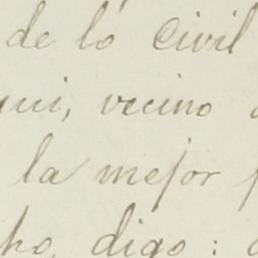 de lo civil
qui, vecino
la mejor p
ho, digo: